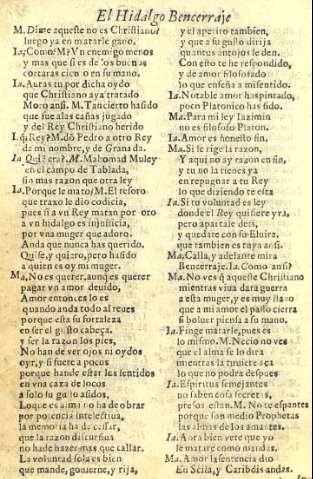 El Hidalgo Bencerraje
M. Dime aqueste no es Christiano?
luego ya en matarle gano.
Ia. Como? M. Vn enemigo menos
y mas que si es de los buenos
cortaras cien o en su mano.
Ia. Auras tu por dicha oydo
que Christiano aya tratado
Moro ansi. M. Tan cierto ha sido
que fue alas cañas jugado
y del Rey Christiano herido
Ia. q Rey? M. dõ Pedro a otro Rey
da mi nombre, y de Granada.
Ia. Quiẽ era? M. Mahomad Muley
en el campo de Tablada,
sin mas razon que otra ley
Ia. Porque le mato? M. El tesoro
que traxo le dio codicia,
pues si a vn Rey matan por oro
a vn hidalgo es injusticia,
por vna muger que adoro.
Anda que nunca has querido.
Quise, y quiero, pero ha sido
a quien es oy mi muger.
Ma. No es querer, aunq̃ es querer
pagar vn amor deuido,
Amor entonces lo es
quando anda todo al reues
porque esta su fortaleza
en ser el gusto cabeça,
y ser la razon los pies.
No han de ver ojos ni oydos
oyr, y si fuere a pocos
porque han de estar los sentidos
en vna caza de locos
a solo su gusto asidos,
Lo que es alma no ha de obrar
por potencia intelectiua,
la memoria ha de cessar,
que la razon discursiua
no ha de hazer mas que callar.
La voluntad sola es bien
que mande, gouierne, y rija,
y el apetito tambien,
y que a su gusto dirija
quantos antojos le den.
Con esto te he respondido,
y de amor filosofado
lo que enseña a mi sentido.
Ia. Notable amor has pintado,
poco Platonico has sido.
M. Para mi ley Iazimin
no es filosofo Platon.
Ia. Amor es honesto fin.
Ma. Si le rige la razon,
Y aqui no ay razon en fin,
y tu no la tienes ya
en repugnar a tu Rey
lo que diziendo te està
Ia. Si tu voluntad es ley
donde el Rey quisiere yra,
pero apartale de ti,
y quedate con su Eluira,
que tambien es tuya ansi.
Ma. Calla, y adelante mira
Bencerraje. Ia. Como ansi?
M. No ves q̃ aqueste Christiano
mientras viua dara guerra
a esta muger, y es muy llano
que a mi amor el passo cierra
si boluer piensa a su mano.
Ia. Finge matarle, pues es
lo mismo. M. Necio no ves
que el alma se lo dira
mientras la tuuiere acà
lo que no podra despues
Ia. Espiritus semejantes
no saben cosa secreta,
presos estan. M. No te espantes
porque son medio Prophetas
las almas de los amantes.
Ia. Aora bien vete que yo
le matare como mandas.
M. Amor la sentencia dio
En Scila, y Caribdis andas.